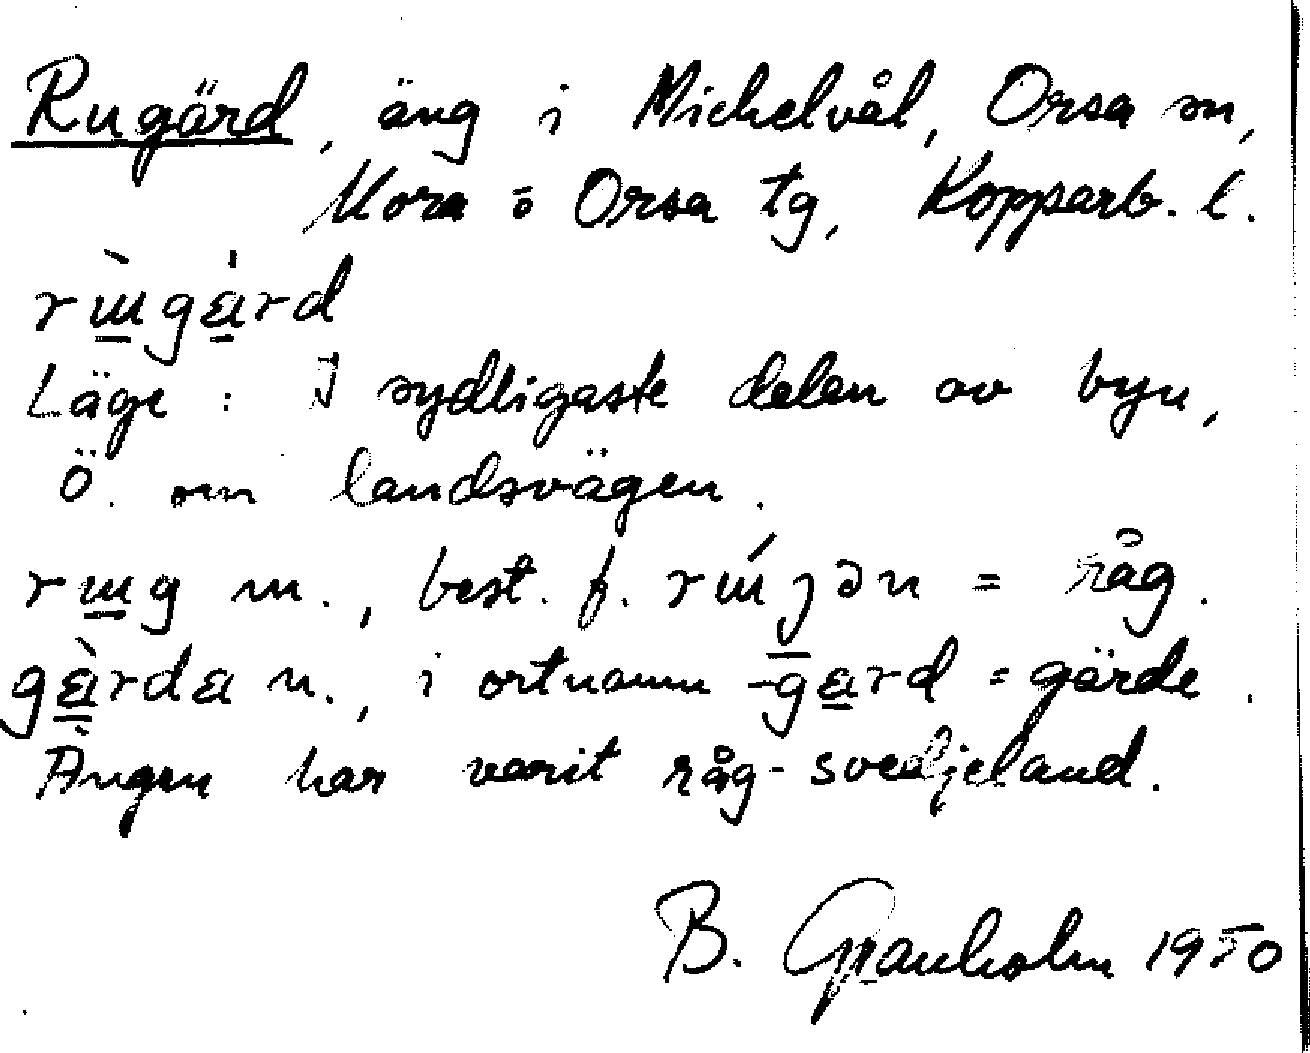 Rugärd, äng i Mickelvål, Orsa sn,
Mora o Orsa tg, Kopparb. l.
Läge : I sydligaste delen av byn,
Ö. om landsvägen.
m., best. f. = råg.
n., i ortnamn = gärde.
Ängen har varit råg-svedjeland.
B. Granholm 1950